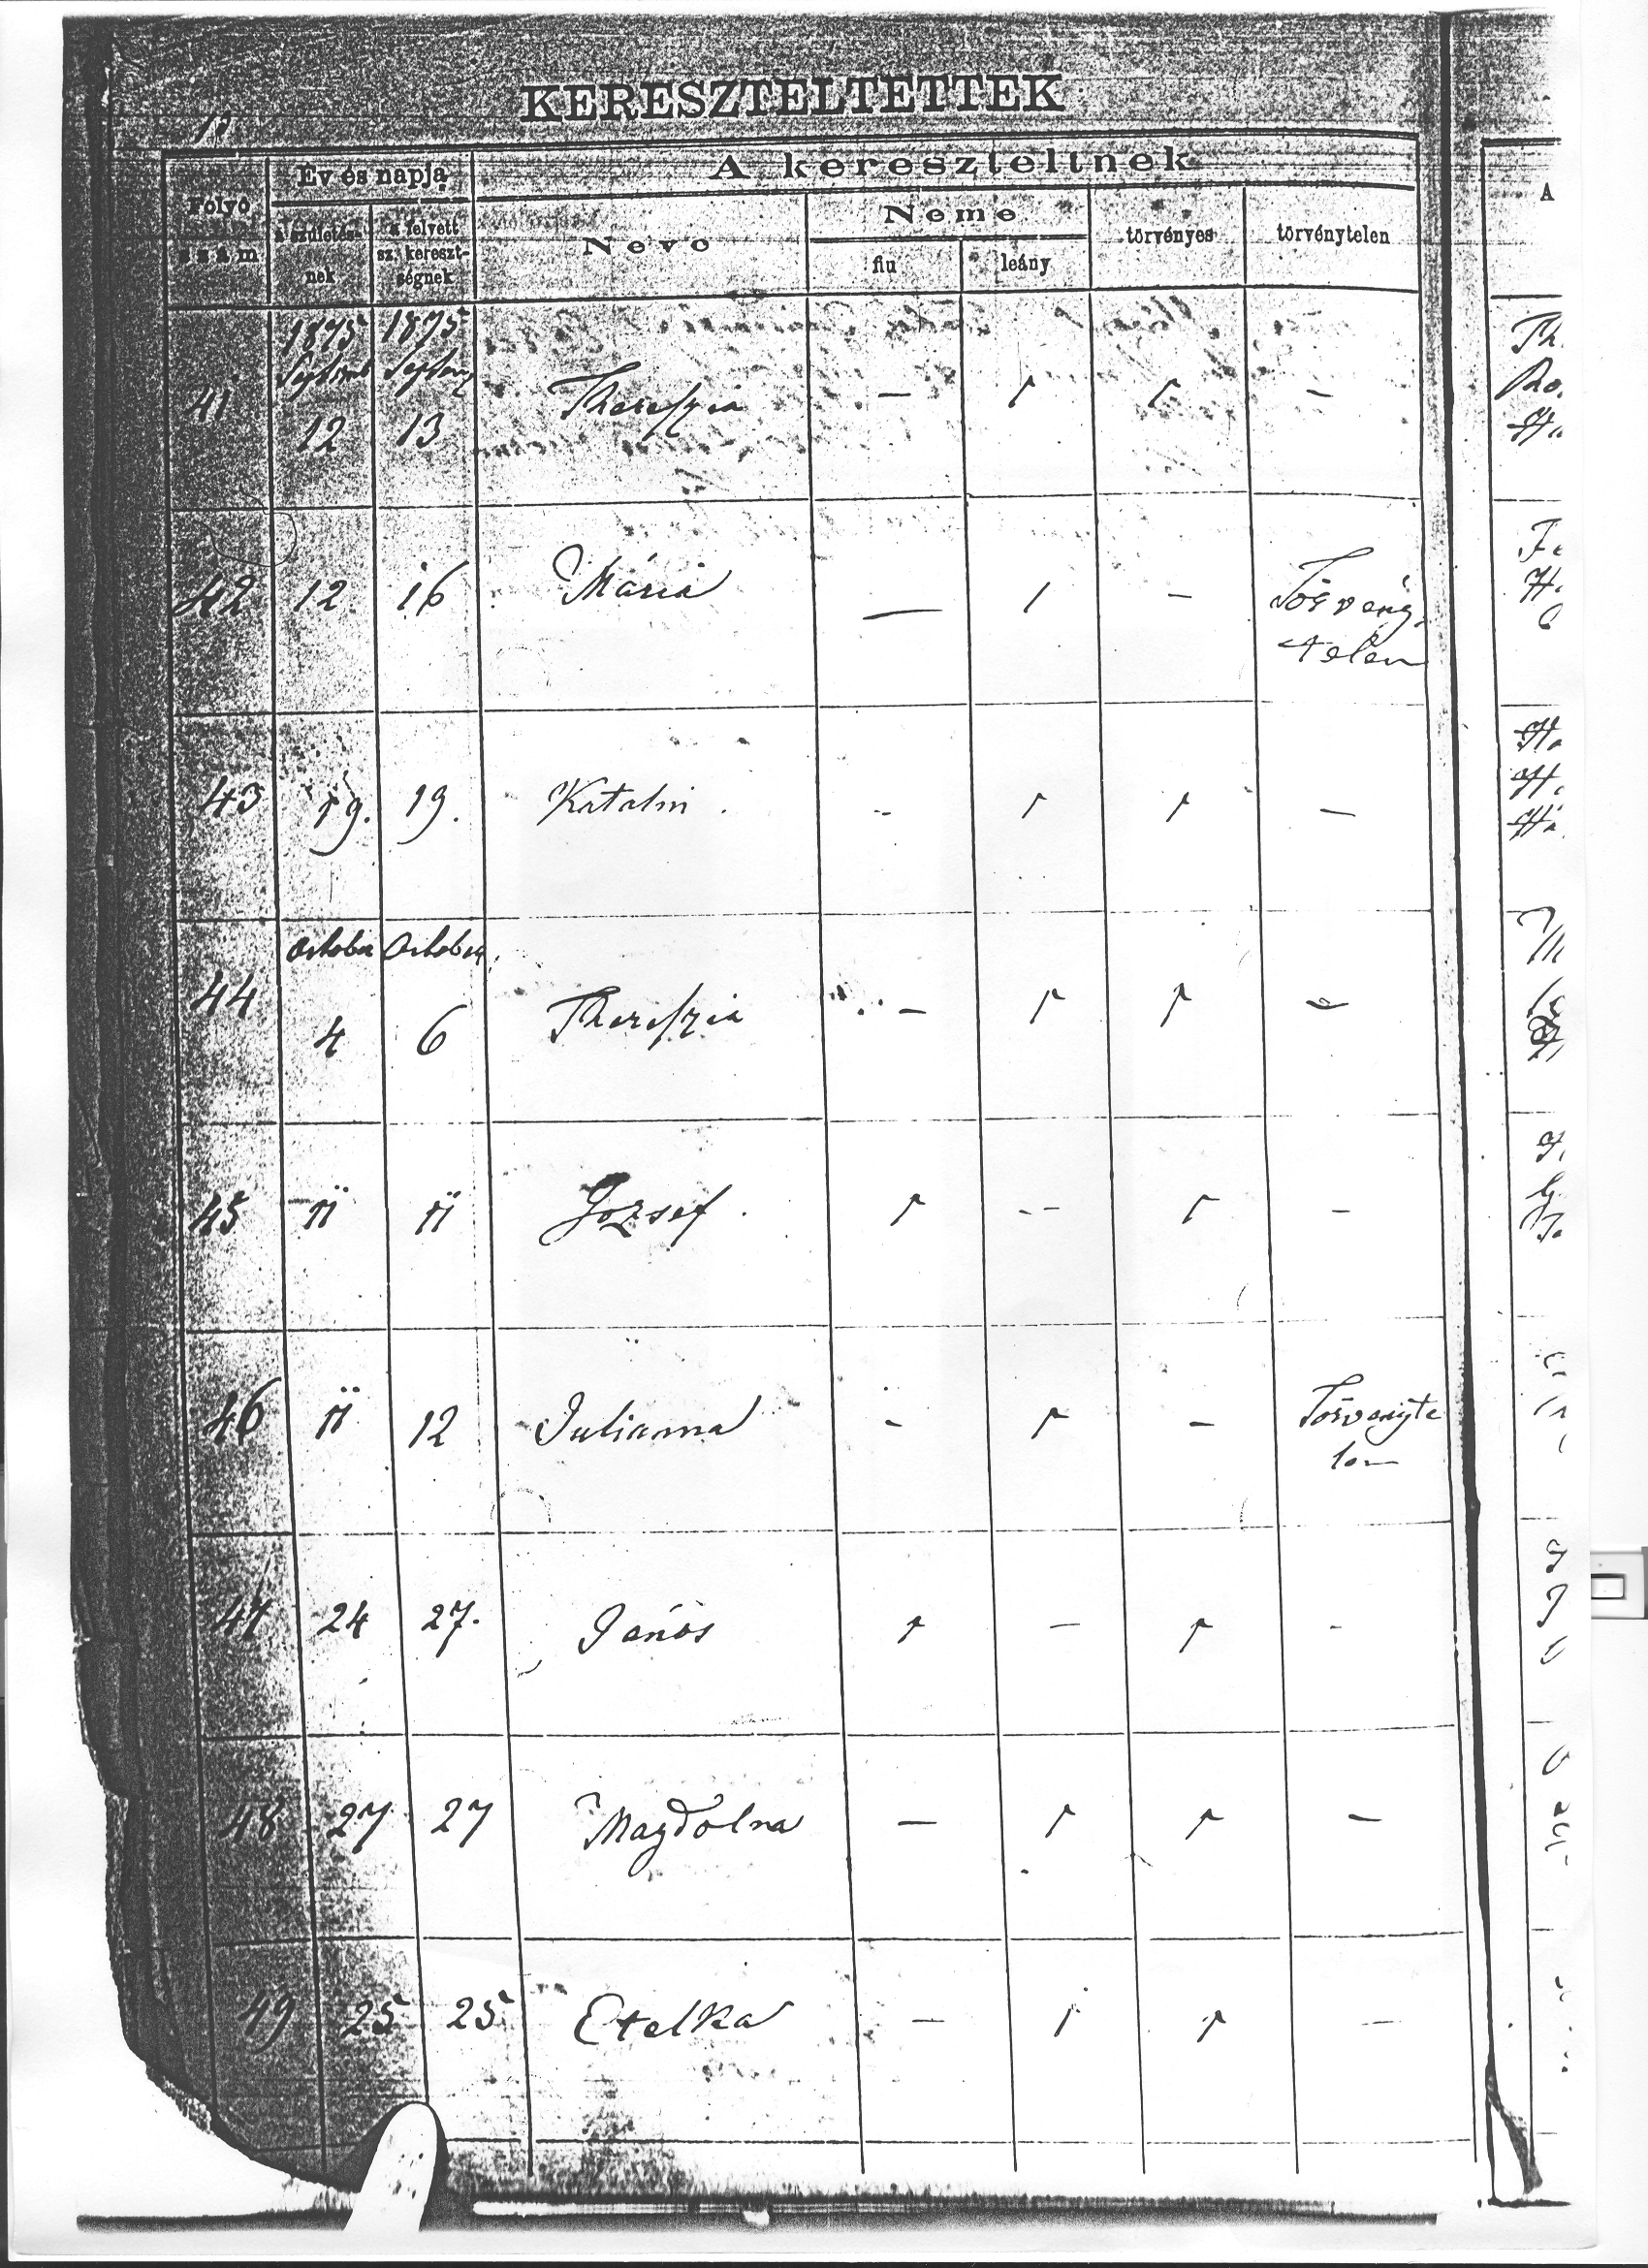 KERESZTELTETTEK
Folyó szám
Év és napja
a születés-nek
a felvett sz. kereszt-ségnek
A kereszteltnek
Neve
Neme
fiu
leány
törvényes
törvénytelen
1875 1875
41 12 13 Thereszia — 1 1 —
42 12 16 Mária — 1 — Törvény
telen
43 19. 19. Katalin - 1 1 —
October October
44 4 6 Thereszia — 1 1 —
45 11 11 József 1 -- 1 -
46 11 12 Julianna - 1 — Törvenyte
len
47 24 27. János 1 — 1 -
48 27 27 Magdolna — 1 1 —
49 25 25 Etelka — 1 1 —